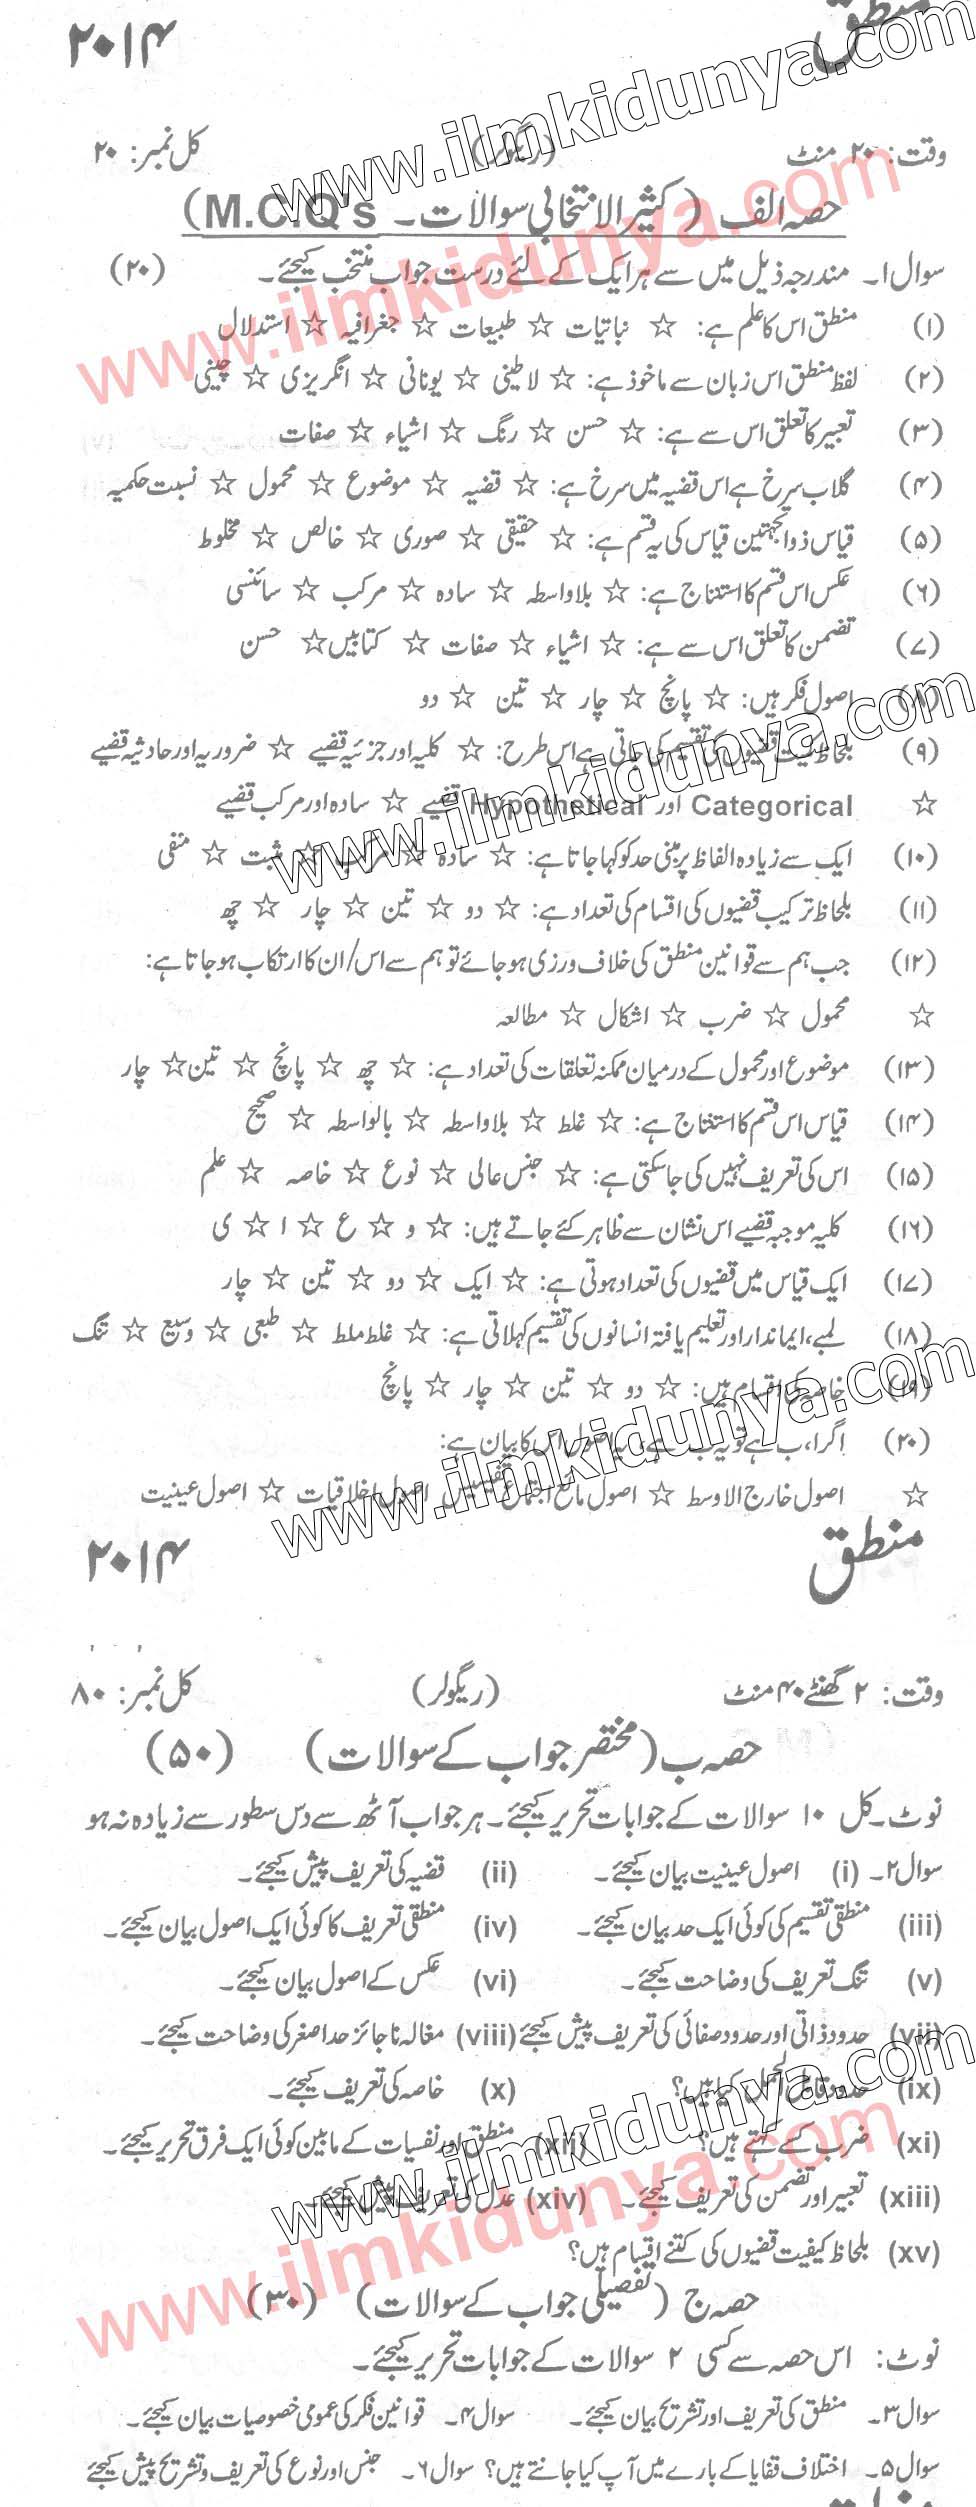 منطق ۲۰۱۴
وقت: ۲۰ منٹ (ریگولر) کل نمبر: ۲۰
حصہ الف (کثیر الانتخابی سوالات۔ M.C.Q's)
سوال ۱۔ مندرجہ ذیل میں سے ہر ایک کے لئے درست جواب منتخب کیجئے۔ (۲۰)
(۱) منطق اس کا علم ہے: ☆ نباتیات ☆ طبیعات ☆ جغرافیہ ☆ استدلال
(۲) لفظ منطق اس زبان سے ماخوذ ہے: ☆ لاطینی ☆ یونانی ☆ انگریزی ☆ چینی
(۳) تعبیر کا تعلق اس سے ہے: ☆ حسن ☆ رنگ ☆ اشیاء ☆ صفات
(۴) گلاب سرخ ہے اس قضیہ میں سرخ ہے: ☆ قضیہ ☆ موضوع ☆ محمول ☆ نسبت حکمیہ
(۵) قیاس ذوالجہتین قیاس کی یہ قسم ہے: ☆ حقیقی ☆ صوری ☆ خالص ☆ مخلوط
(۶) عکس اس قسم کا استنتاج ہے: ☆ بلاواسطہ ☆ سادہ ☆ مرکب ☆ سائنسی
(۷) تضمن کا تعلق اس سے ہے: ☆ اشیاء ☆ صفات ☆ کتابیں ☆ حسن
(۸) اصول فکر ہیں: ☆ پانچ ☆ چار ☆ تین ☆ دو
(۹) بلحاظ کیت قضیوں کی تقسیم کی جاتی ہے اس طرح: ☆ کلیہ اور جزئیہ قضیے ☆ ضروریہ اور حادثیہ قضیے
☆ Categorical اور Hypothetical قضیے ☆ سادہ اور مرکب قضیے
(۱۰) ایک سے زیادہ الفاظ پر مبنی حد کو کہا جاتا ہے: ☆ سادہ ☆ مرکب ☆ مثبت ☆ منفی
(۱۱) بلحاظ ترکیب قضیوں کی اقسام کی تعداد ہے: ☆ دو ☆ تین ☆ چار ☆ چھ
(۱۲) جب ہم سے قوانین منطق کی خلاف ورزی ہو جائے تو ہم سے اس/ان کا ارتکاب ہو جاتا ہے:
☆ محمول ☆ ضرب ☆ اشکال ☆ مطالعہ
(۱۳) موضوع اور محمول کے درمیان ممکنہ تعلقات کی تعداد ہے: ☆ چھ ☆ پانچ ☆ تین ☆ چار
(۱۴) قیاس اس قسم کا استنتاج ہے: ☆ غلط ☆ بلاواسطہ ☆ بالواسطہ ☆ صحیح
(۱۵) اس کی تعریف نہیں کی جا سکتی ہے: ☆ جنس عالی ☆ نوع ☆ خاصہ ☆ علم
(۱۶) کلیہ موجبہ قضیے اس نشان سے ظاہر کئے جاتے ہیں: ☆ و ☆ ع ☆ ا ☆ ی
(۱۷) ایک قیاس میں قضیوں کی تعداد ہوتی ہے: ☆ ایک ☆ دو ☆ تین ☆ چار
(۱۸) لمبے، ایماندار اور تعلیم یافتہ انسانوں کی تقسیم کہلاتی ہے: ☆ غلط ملط ☆ طبعی ☆ وسیع ☆ تنگ
(۱۹) خاصہ کی اقسام ہیں: ☆ دو ☆ تین ☆ چار ☆ پانچ
(۲۰) اگر ا، ب ہے تو یہ ب ہے، یہ اصول اس کا بیان ہے:
☆ اصول خارج الاوسط ☆ اصول مانع اجتماع نقیضین اصول اخلاقیات ☆ اصول عینیت
منطق ۲۰۱۴
وقت: ۲ گھنٹے ۴۰ منٹ (ریگولر) کل نمبر: ۸۰
حصہ ب (مختصر جواب کے سوالات) (۵۰)
نوٹ۔ کل ۱۰ سوالات کے جوابات تحریر کیجئے۔ ہر جواب آٹھ سے دس سطور سے زیادہ نہ ہو
سوال ۲۔ (i) اصول عینیت بیان کیجئے۔ (ii) قضیہ کی تعریف پیش کیجئے۔
(iii) منطقی تقسیم کی کوئی ایک حد بیان کیجئے۔ (iv) منطقی تعریف کا کوئی ایک اصول بیان کیجئے۔
(v) تنگ تعریف کی وضاحت کیجئے۔ (vi) عکس کے اصول بیان کیجئے۔
(vii) حدود ذاتی اور حدود صفاتی کی تعریف پیش کیجئے (viii) مغالہ ناجائز حد اصغر کی وضاحت کیجئے۔
(ix) حدود قابل الحمل کیا ہیں؟ (x) خاصہ کی تعریف کیجئے۔
(xi) ضرب کسے کہتے ہیں؟ (xii) منطق اور نفسیات کے مابین کوئی ایک فرق تحریر کیجئے۔
(xiii) تعبیر اور تضمن کی تعریف کیجئے۔ (xiv) عدل کی تعریف پیش کیجئے۔
(xv) بلحاظ کیفیت قضیوں کی کتنے اقسام ہیں؟
حصہ ج (تفصیلی جواب کے سوالات) (۳۰)
نوٹ: اس حصہ سے کسی ۲ سوالات کے جوابات تحریر کیجئے۔
سوال ۳۔ منطق کی تعریف اور تشریح بیان کیجئے۔ سوال ۴۔ قوانین فکر کی عمومی خصوصیات بیان کیجئے۔
سوال ۵۔ اختلاف قفایا کے بارے میں آپ کیا جانتے ہیں؟ سوال ۶۔ جنس اور نوع کی تعریف و تشریح پیش کیجئے
www.ilmkidunya.com
www.ilmkidunya.com
www.ilmkidunya.com
www.ilmkidunya.com
www.ilmkidunya.com
www.ilmkidunya.com